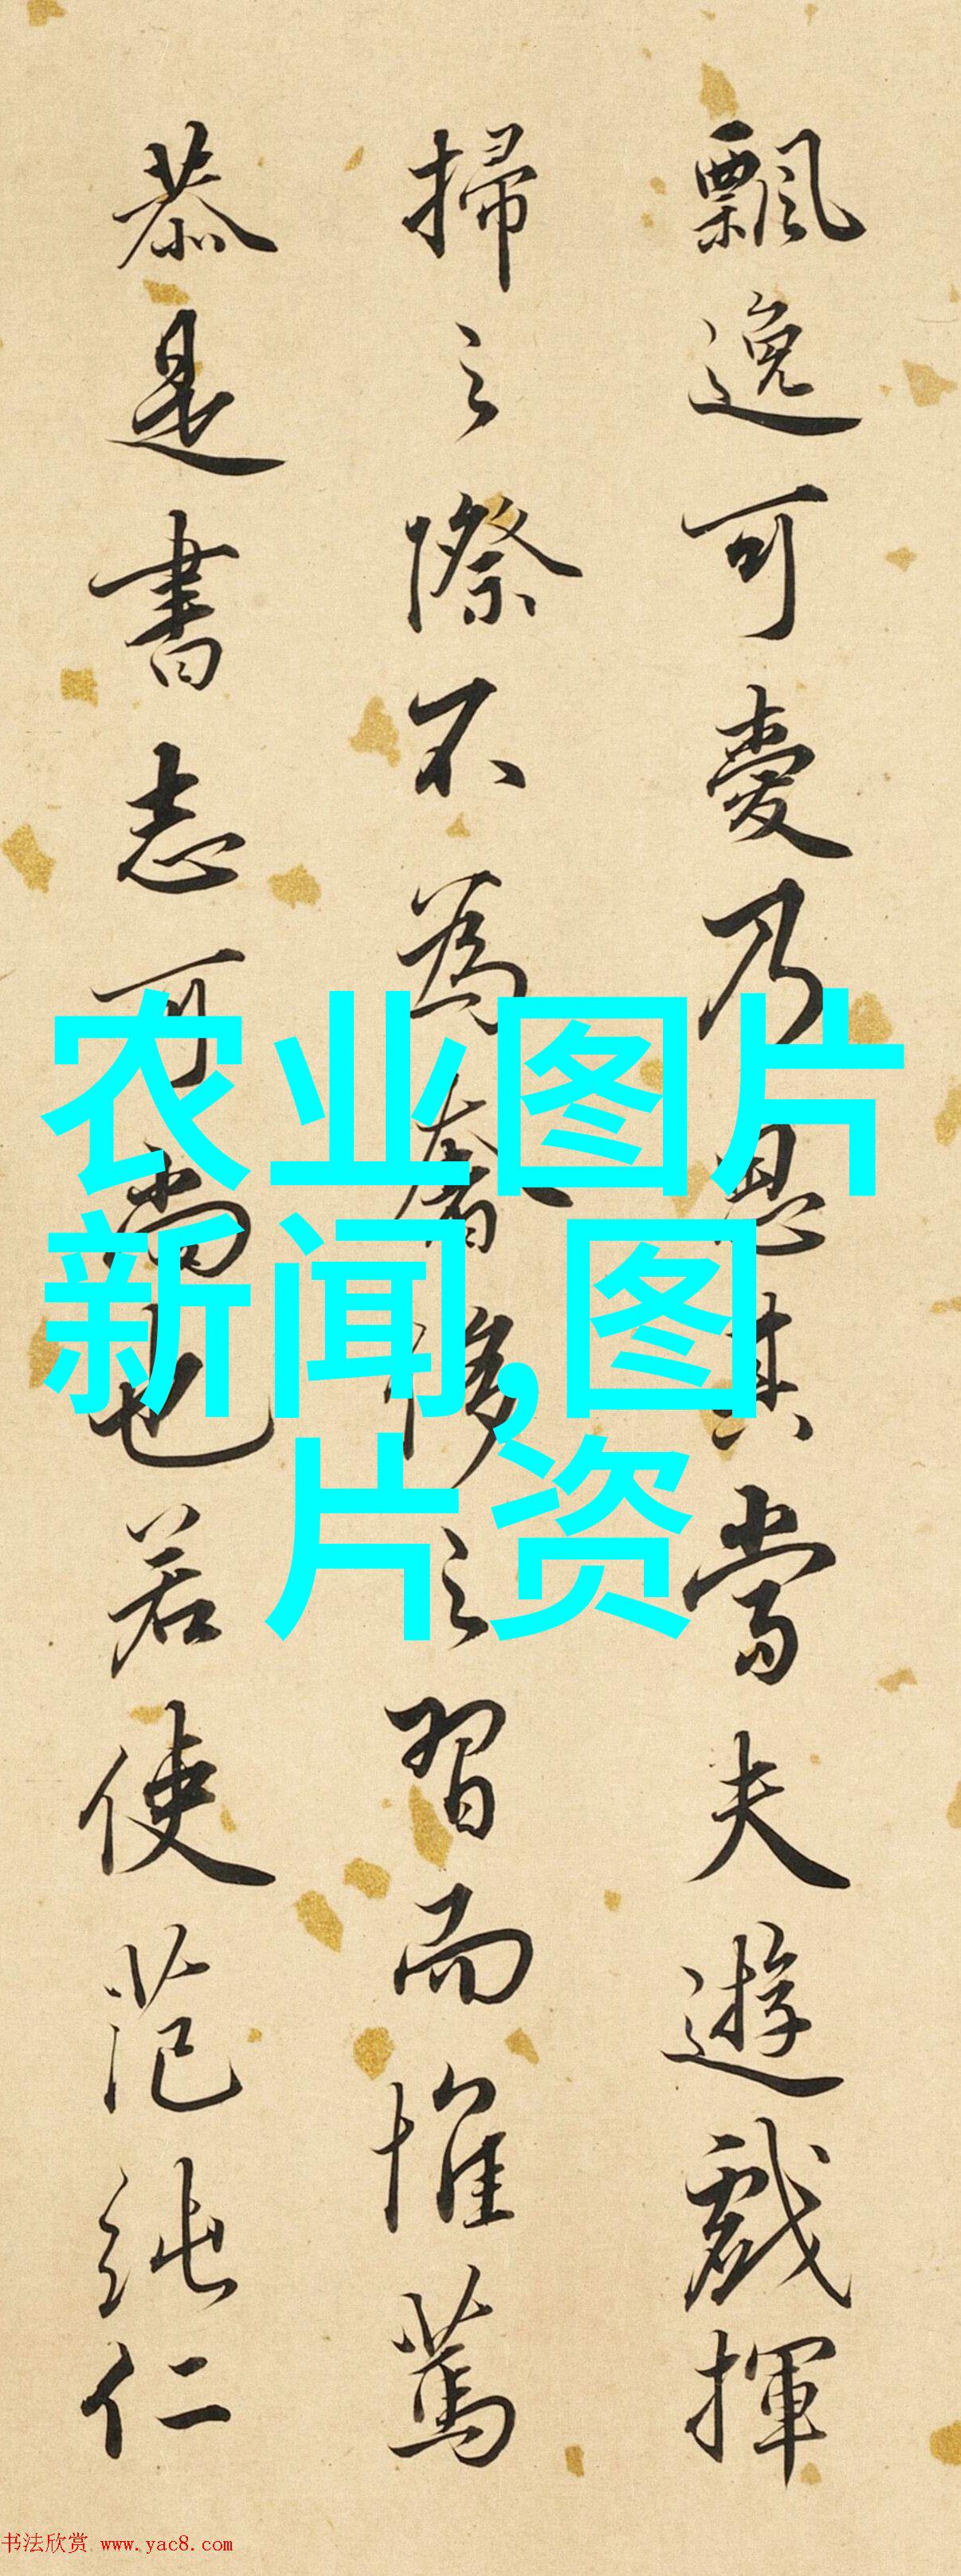 飄逸可愛乃思其當夫遊戲揮
掃之際不為奢侈之習而惟篤
恭是書志可尚也若使范純仁
农业图片
新闻,图
片资
书法欣赏 www.yac8.com